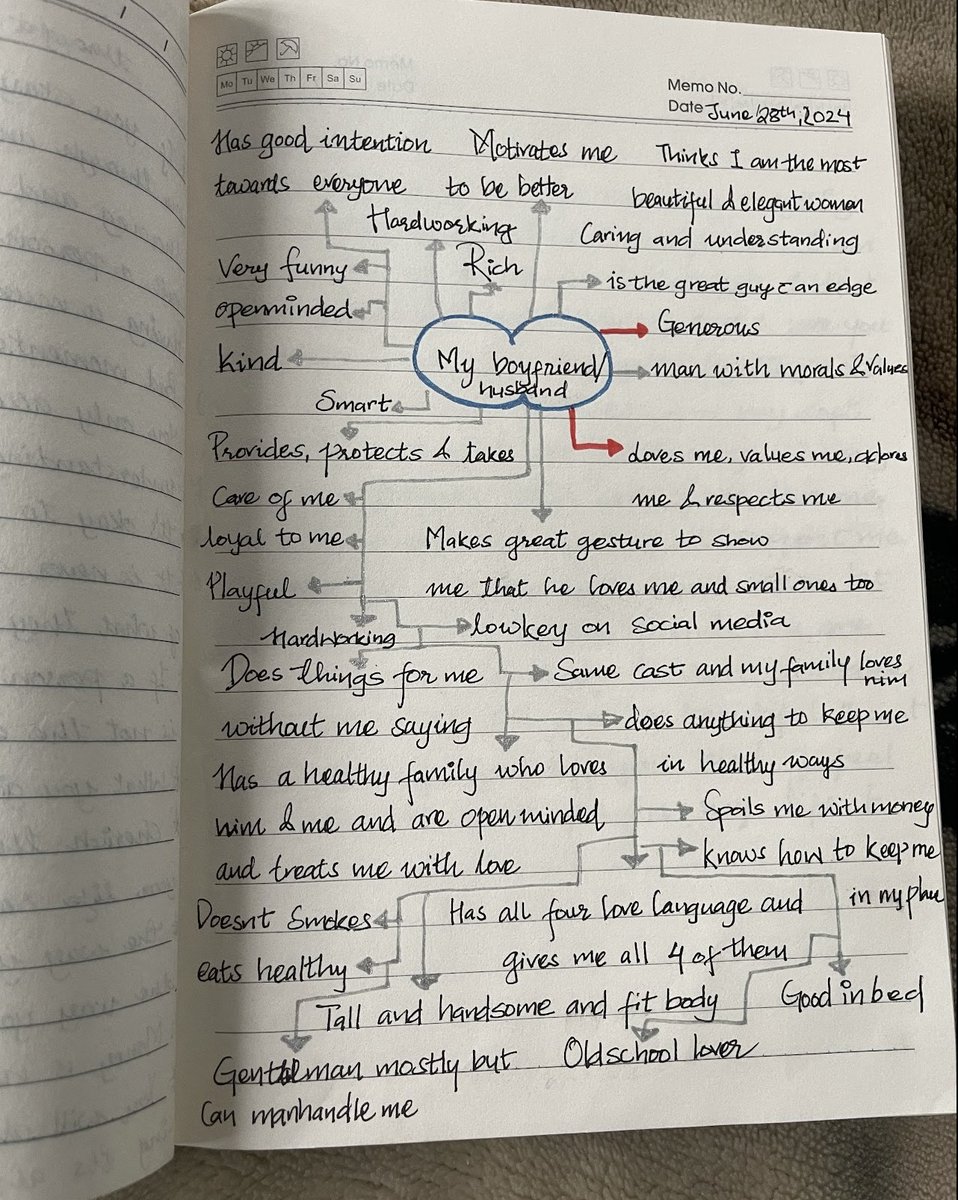 Mo Tu We Th Fr Sa Su
Memo No.
Date June 28th, 2024
Has good intention
towards everyone
Motivates me
to be better
Thinks I am the most
beautiful & elegant women
Hardworking
Caring and understanding
Very funny
Rich
is the great guy can edge
openminded
Generous
Kind
My boyfriend/
husband
man with morals & values
Smart
Provides, protects & takes
Care of me
loves me, values me, adores
me & respects me
loyal to me
Makes great gesture to show
me that he loves me and small ones too
Playful
lowkey on social media
Hardworking
Does things for me
without me saying
Same cast and my family loves
him
does anything to keep me
in healthy ways
Has a healthy family who loves
him & me and are open minded
and treats me with love
Spoils me with money
knows how to keep me
in my
Doesnt Smokes
Has all four love language and
gives me all 4 of them
eats healthy
Tall and handsome and fit body
Good in bed
Gentleman mostly but
Can manhandle me
Oldschool lover